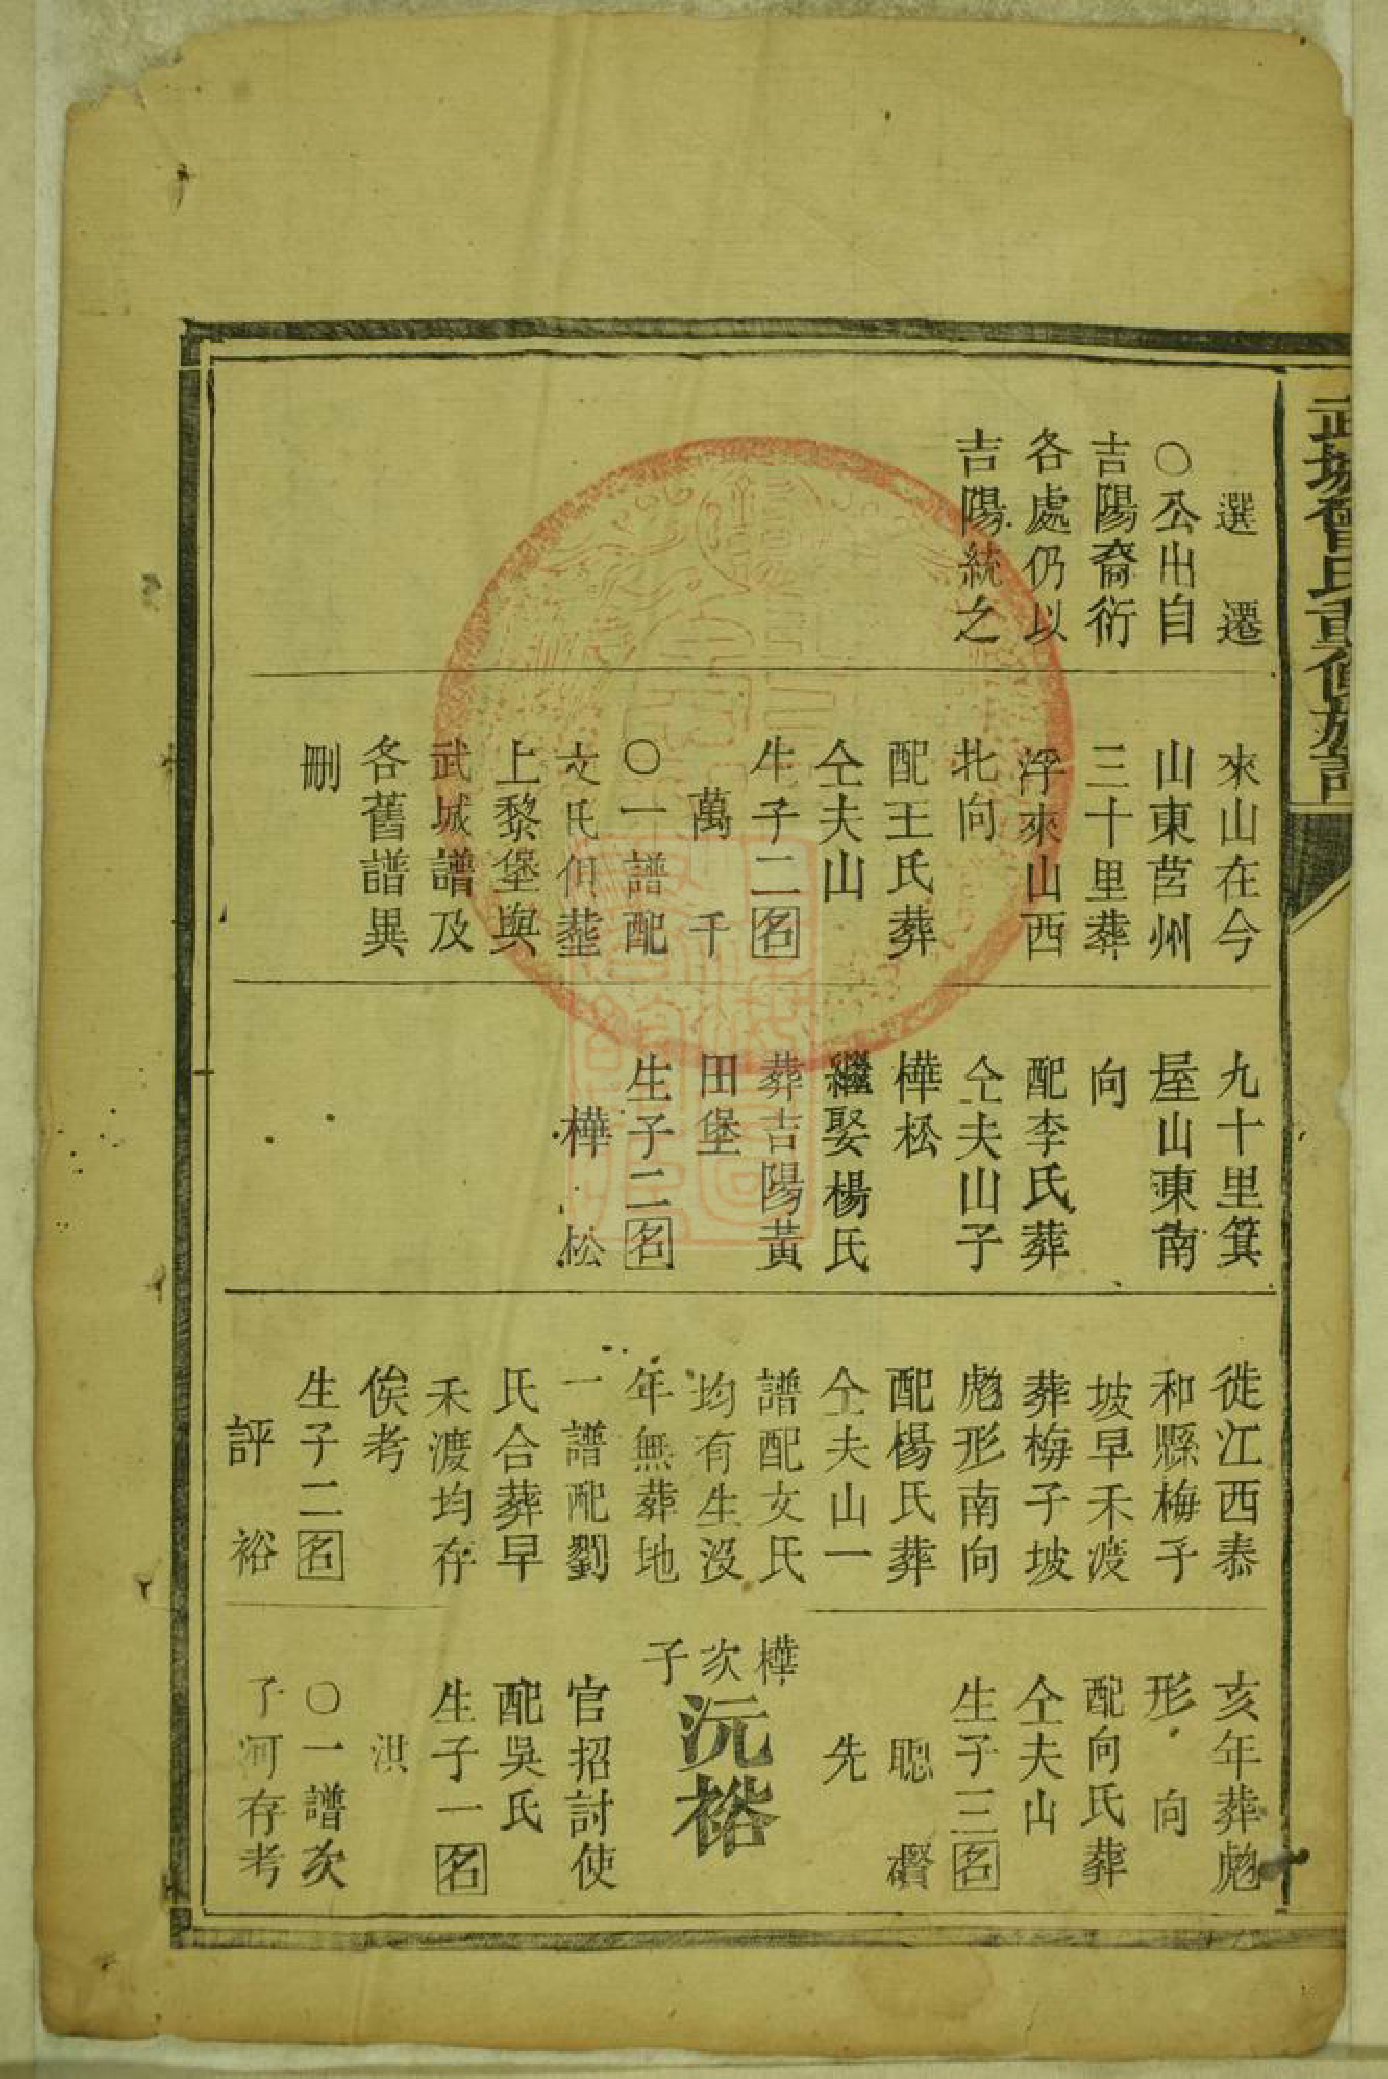 武城曾氏重修族譜
選遷
○公出自
吉陽裔衍
各處仍以
吉陽統之
來山在今
山東莒州
三十里葬
浮來山西
北向
配王氏葬
仝夫山
生子二名
萬千
○一譜配
文氏俱塟
上黎堡與
武城譜及
各舊譜異
刪
九十里箕
屋山東南
向
配李氏葬
仝夫山子
樺松
繼娶楊氏
葬吉陽黃
田堡
生子二名
樺松
徙江西泰
和縣梅子
坡早禾渡
葬梅子坡
彪形南向
配楊氏葬
仝夫山一
譜配文氏
均有生沒
年無葬地
一譜配劉
氏合葬早
禾渡均存
俟考
生子二名
評裕
亥年葬彪
形向
配向氏葬
仝夫山
生子三名
聰
先
樺次子
沅裕
官招討使
配吳氏
生子一名
洪
○一譜次
子河存考